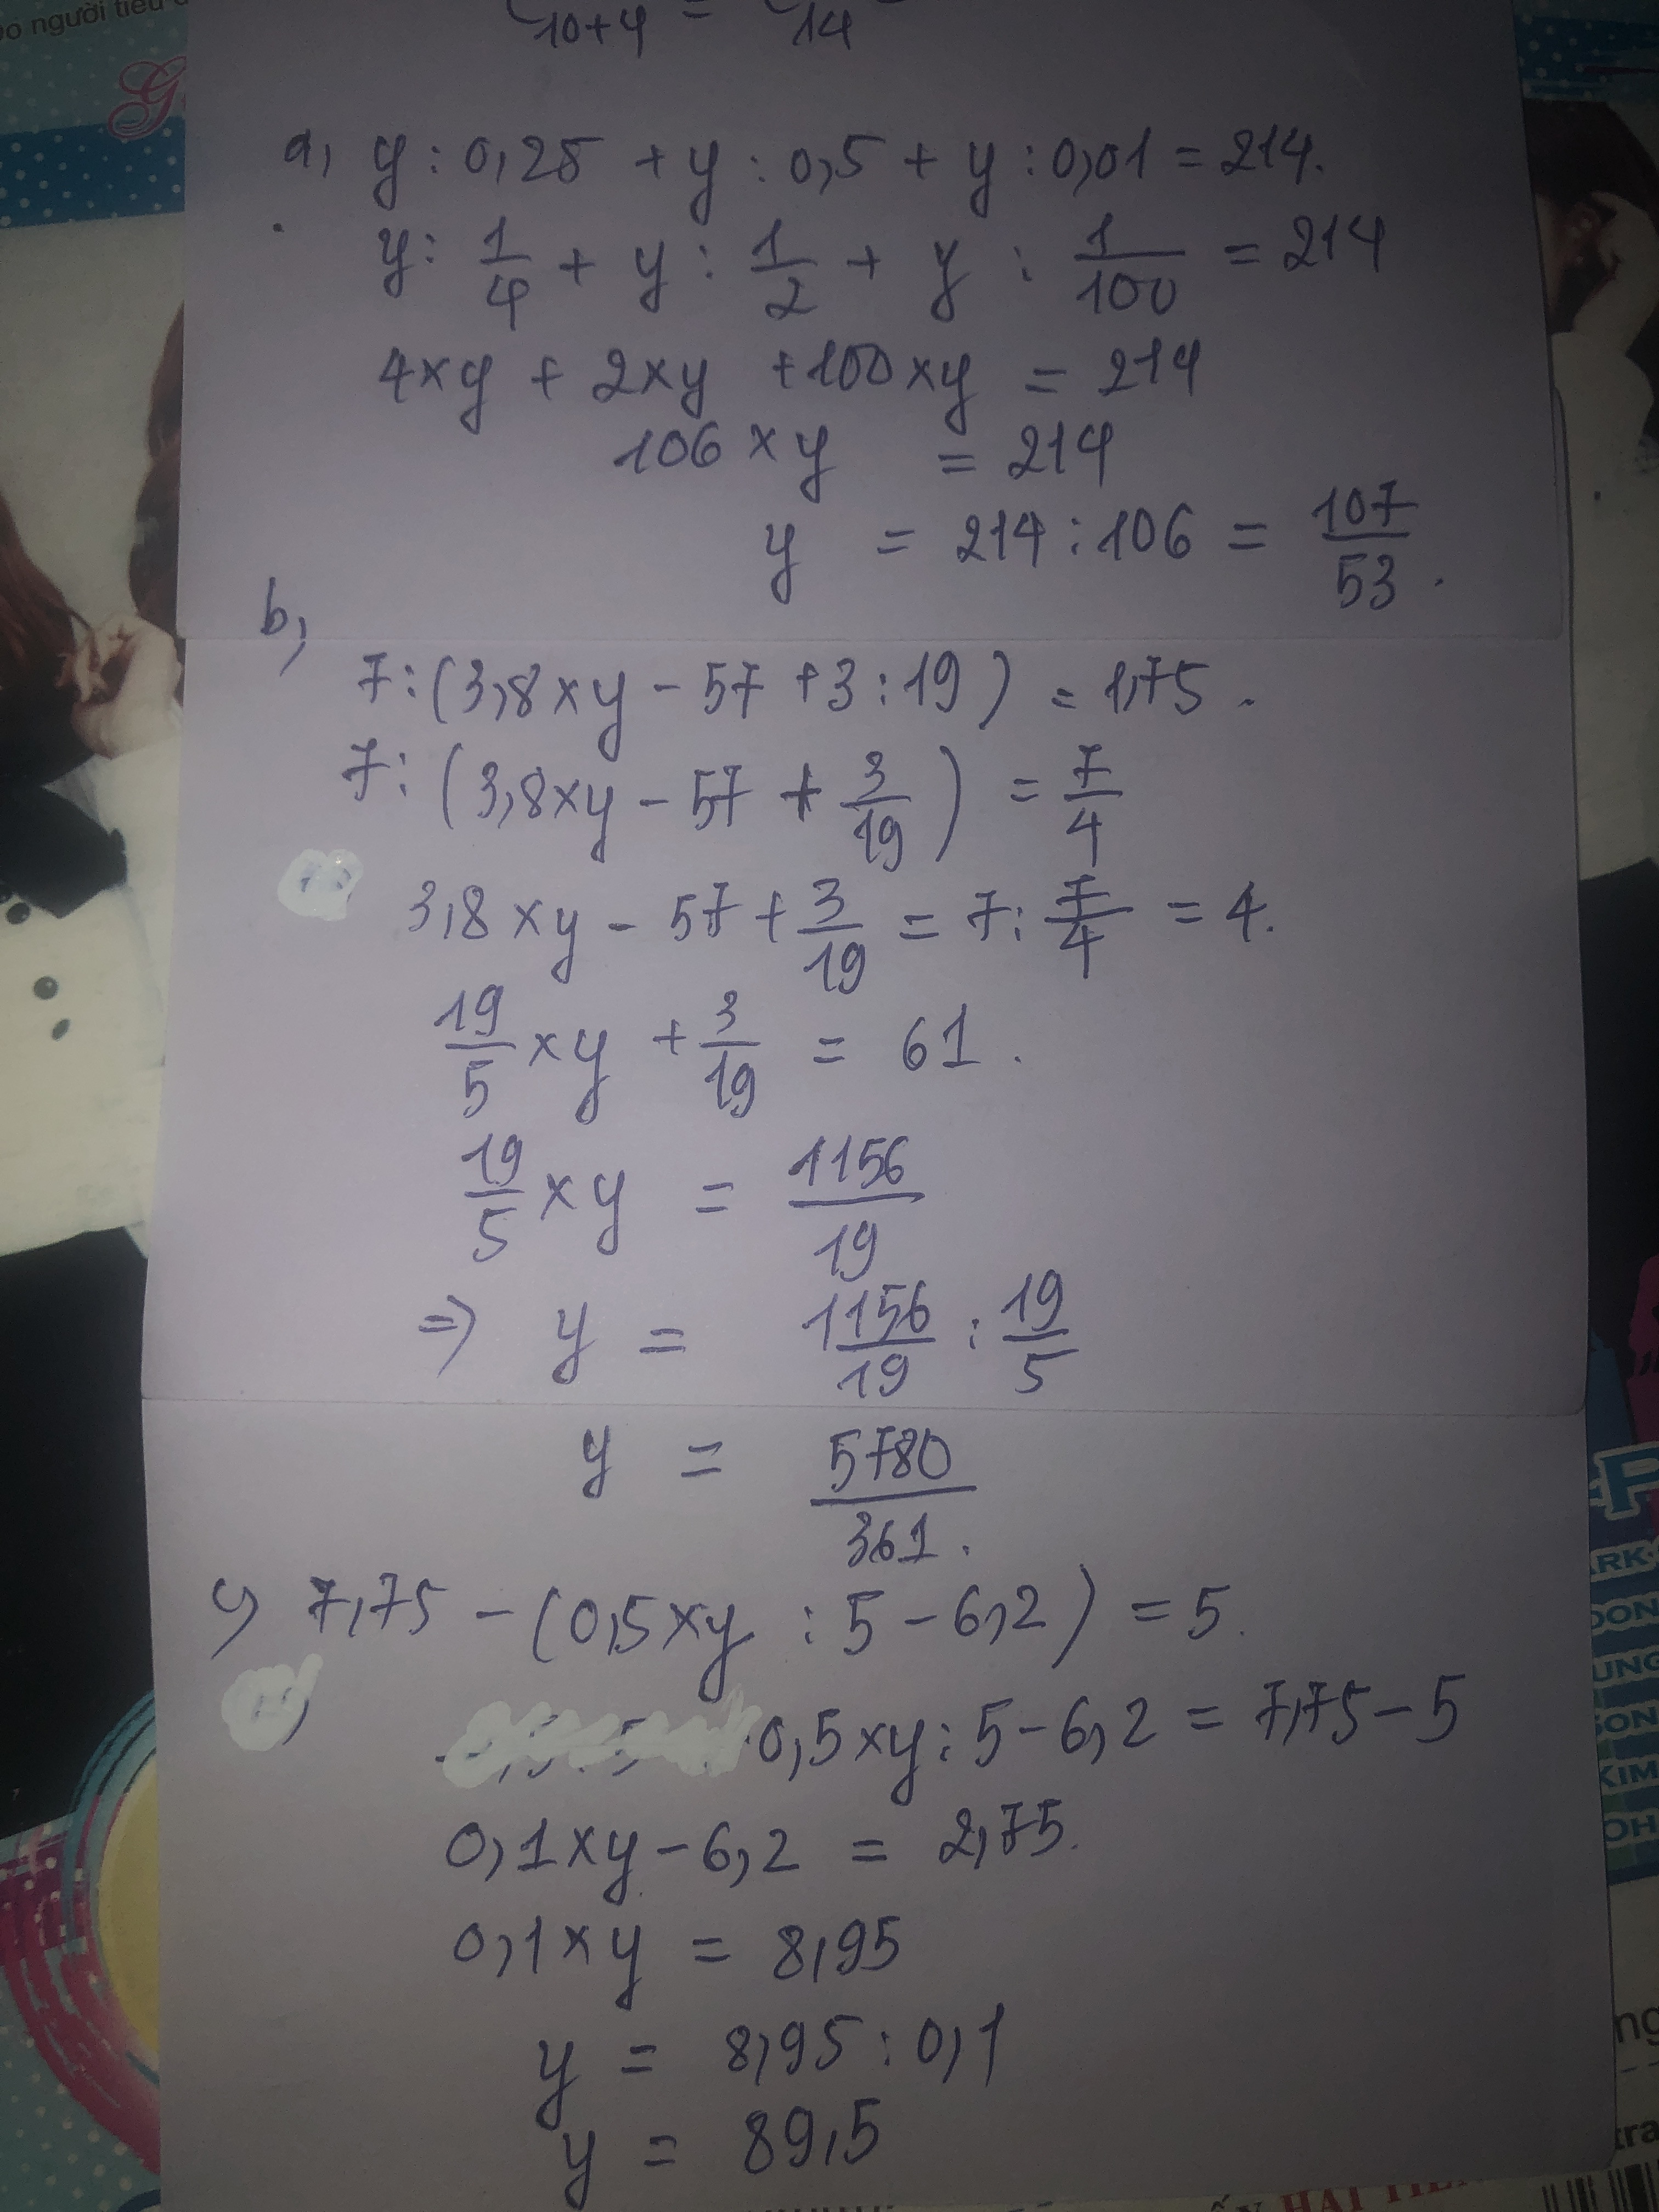 Do người tiêu
10+4 = 14
a, y : 0,25 + y : 0,5 + y : 0,01 = 214.
y : 1/4 + y : 1/2 + y : 1/100 = 214
4xy + 2xy + 100xy = 214
106 x y = 214
y = 214 : 106 = 107/53.
b,
7 : (3,8 x y - 57 + 3 : 19) = 1,75.
7 : (3,8xy - 57 + 3/19) = 7/4
3,8 x y - 57 + 3/19 = 7 : 7/4 = 4.
19/5 x y + 3/19 = 61.
19/5 x y = 1156/19
=> y = 1156/19 : 19/5
y = 5780/361.
c, 7,75 - (0,5xy : 5 - 6,2) = 5.
0,5xy : 5 - 6,2 = 7,75 - 5
0,1xy - 6,2 = 2,75.
0,1xy = 8,95
y = 8,95 : 0,1
y = 89,5
HAI TIẾN